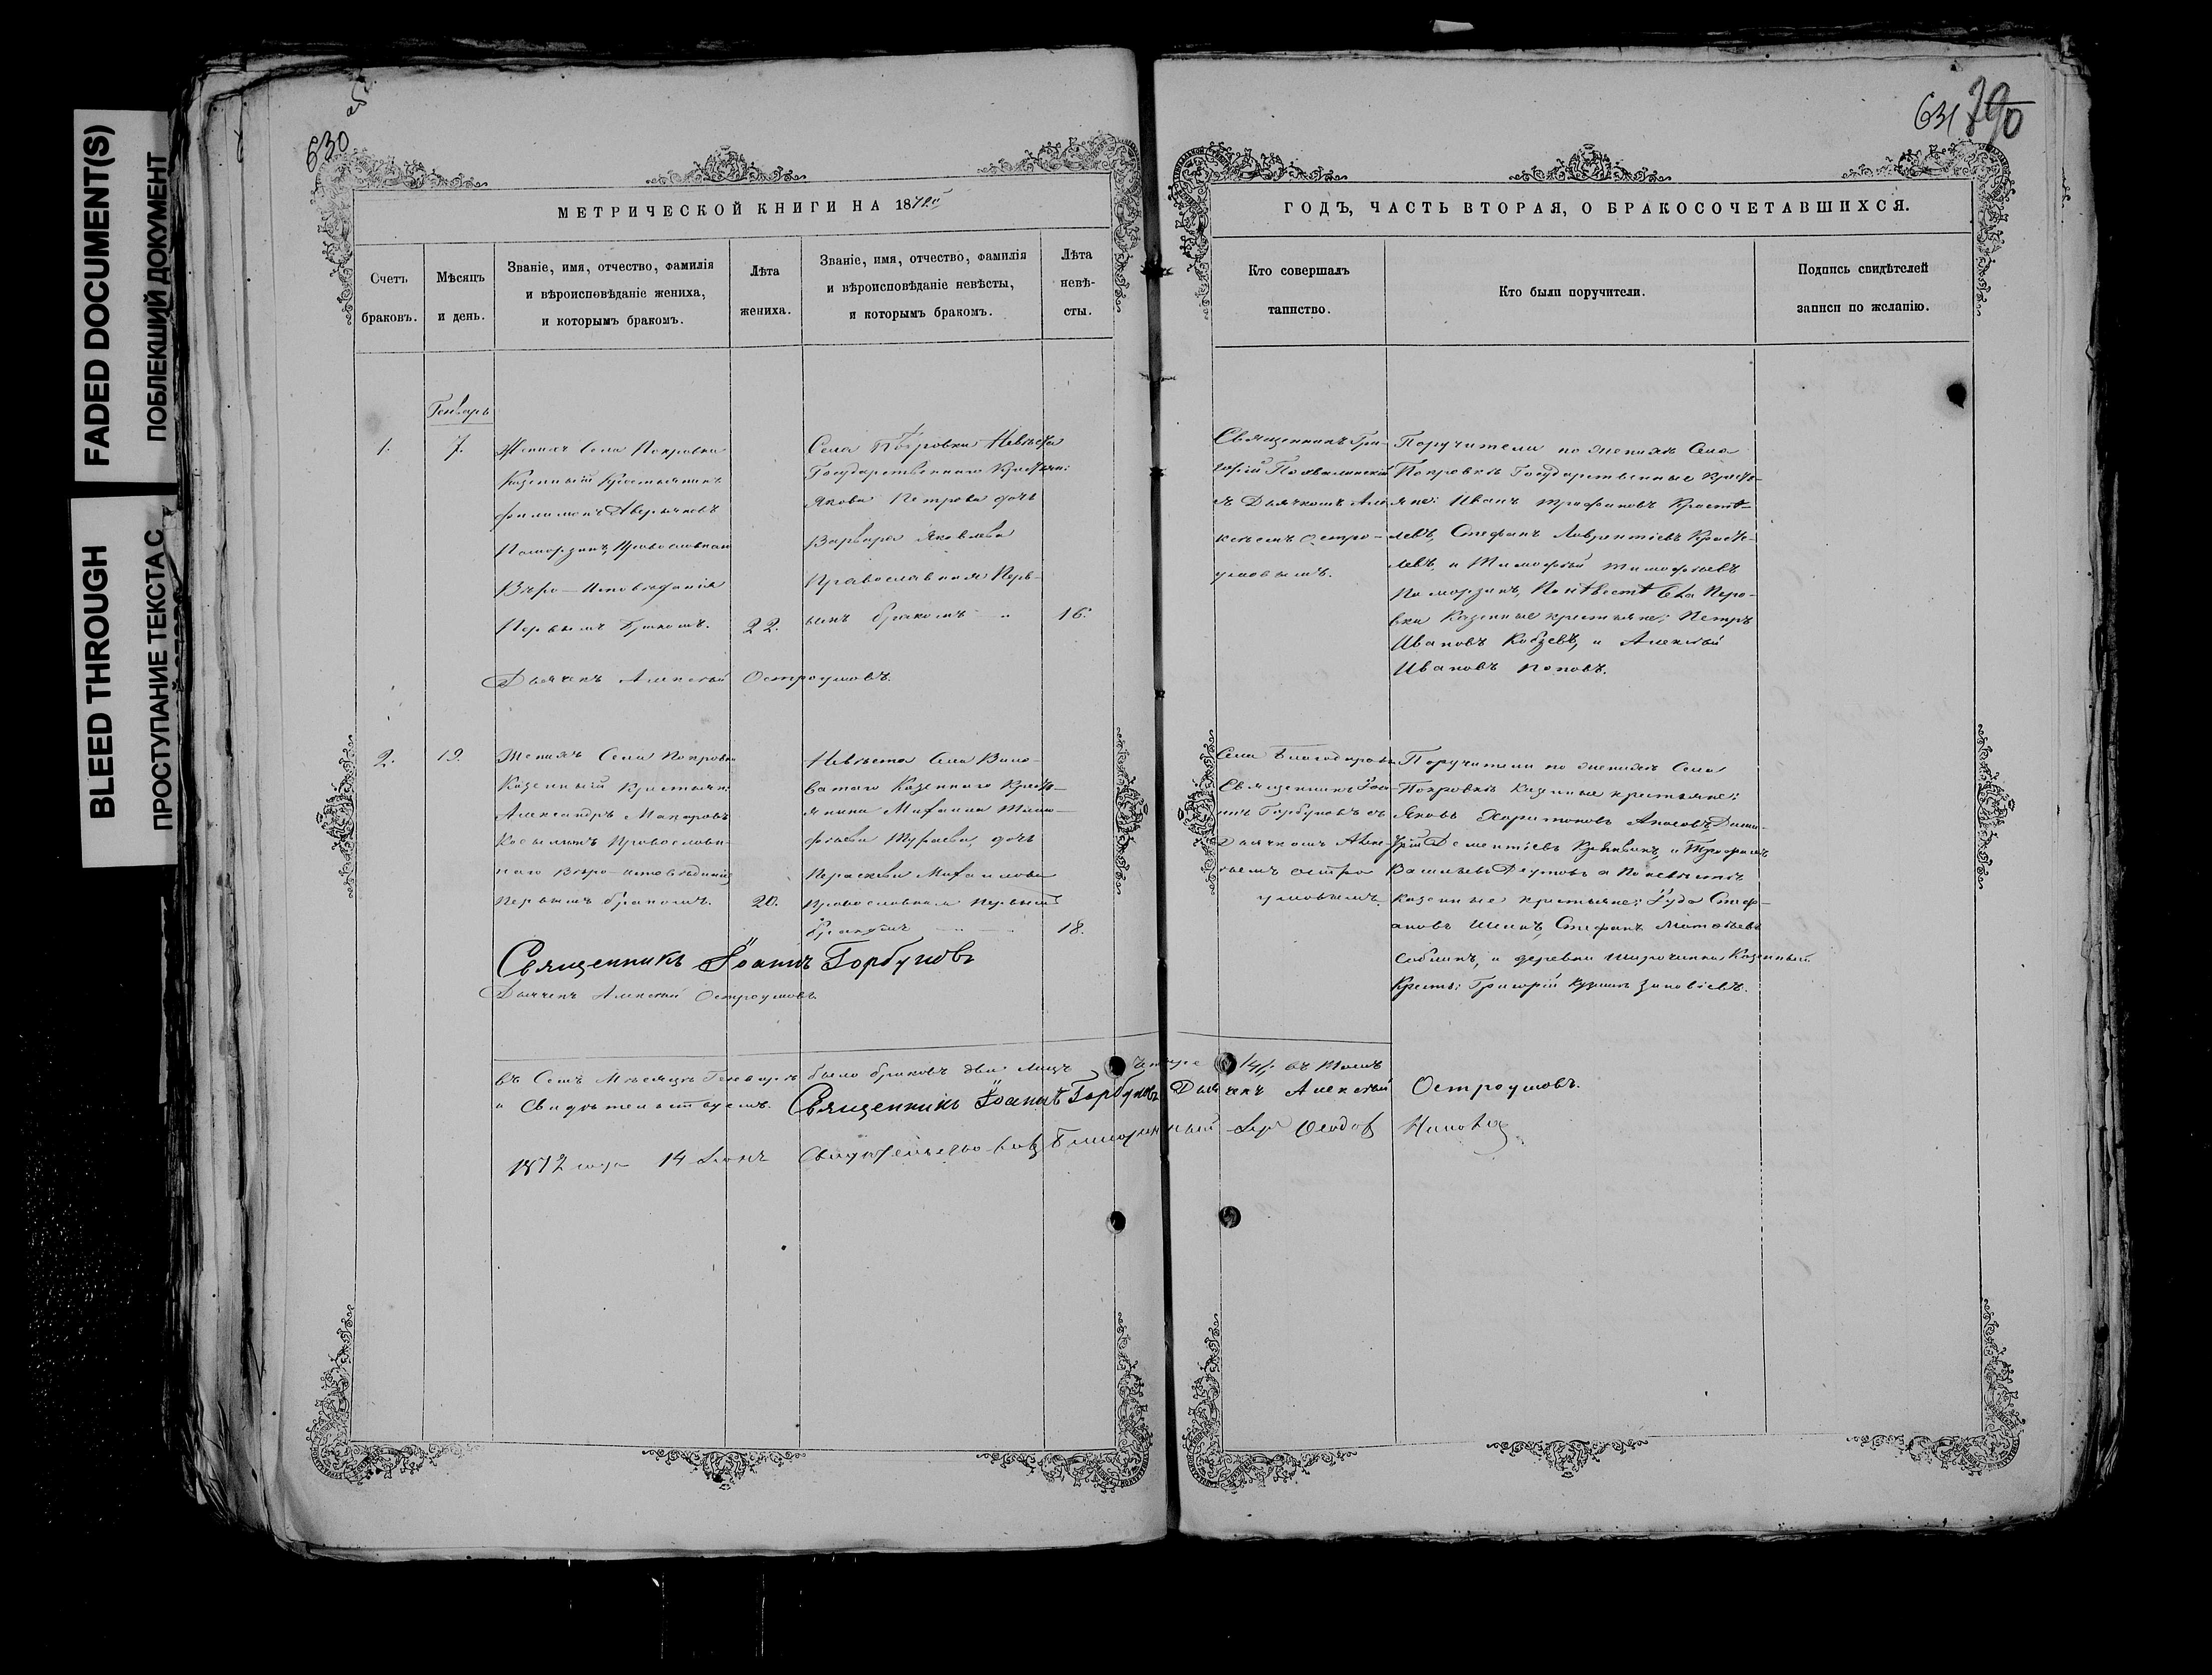 FADED DOCUMENT(S)
ПОБЛЕКШИЙ ДОКУМЕНТ
BLEED THROUGH
ПРОСТУПАНИЕ ТЕКСТА С
630
МЕТРИЧЕСКОЙ КНИГИ НА 1872й
Счетъ браковъ.
Мѣсяцъ и день.
Званіе, имя, отчество, фамилія
и вѣроисповѣданіе жениха,
и которымъ бракомъ.
Лѣта жениха.
Званіе, имя, отчество, фамилія
и вѣроисповѣданіе невѣсты,
и которымъ бракомъ.
Лѣта невѣ-
сты.
Генварь
1.
7.
Женихъ Села Покровки
Казенный Крестьянинъ
Филимонъ Аверьяновъ
Православнаго
Вѣро-Исповѣданія
Первымъ бракомъ.
22.
Села Покровки Невѣста
Государственнаго Крестьяни
Якова Петрова дочь
Варвара Яковлева
Православная Перв-
ымъ бракомъ
16.
Дьячекъ Алексѣй Остроумовъ.
2.
19.
Женихъ Села Покровки
Казенный Крестьяни
Александръ Макаровъ
Православ-
наго Вѣро-исповѣданія
Первымъ бракомъ.
20.
Невѣста Села Вино-
ватаго Казеннаго Кресть-
янина Михаила Тимо-
фѣева дочь
Параскева Михаилова
Православная Первымъ
бракомъ
18.
Священникъ Іоаннъ Горбуновъ
Дьячекъ Алексѣй Остроумовъ
въ Семъ Мѣсяцѣ Генварѣ было браковъ два лицъ четыре /4/. въ томъ
и Свидѣтельствуемъ. Священникъ Іоаннъ Горбуновъ Дьячекъ Алексѣй Остроумовъ.
1872 года 14
631
790
ГОДЪ, ЧАСТЬ ВТОРАЯ, О БРАКОСОЧЕТАВШИХСЯ.
Кто совершалъ
таинство.
Кто были поручители.
Подпись свидѣтелей
записи по желанію.
Священникъ Гри-
горій Похвалинскій
съ Дьячкомъ Але-
ксѣемъ Остро-
умовымъ.
Поручители по женихѣ Села
Покровки Государственные Кресть-
яне: Иванъ Трифановъ
Стефанъ Лаврентіевъ
и Тимофѣй Тимофѣевъ
По невѣстѣ
Казенные крестьяне: Петръ
Ивановъ Кобзевъ, и Алексѣй
Ивановъ Поповъ.
Села Благодаровки
Священникъ Іоан-
нъ Горбуновъ съ
Дьячкомъ Алек-
сѣемъ Остро
умовымъ.
Поручители по женихѣ Села
Покровки Казенные крестьяне:
Яковъ Харитоновъ Дими-
трій Дементіевъ и Трофимъ
Васильевъ а По невѣстѣ
Казенные крестьяне: Іуда Стеф-
ановъ Стефанъ Матвѣевъ
и деревни Казенный
Кресть: Григорій Зиновіевъ.